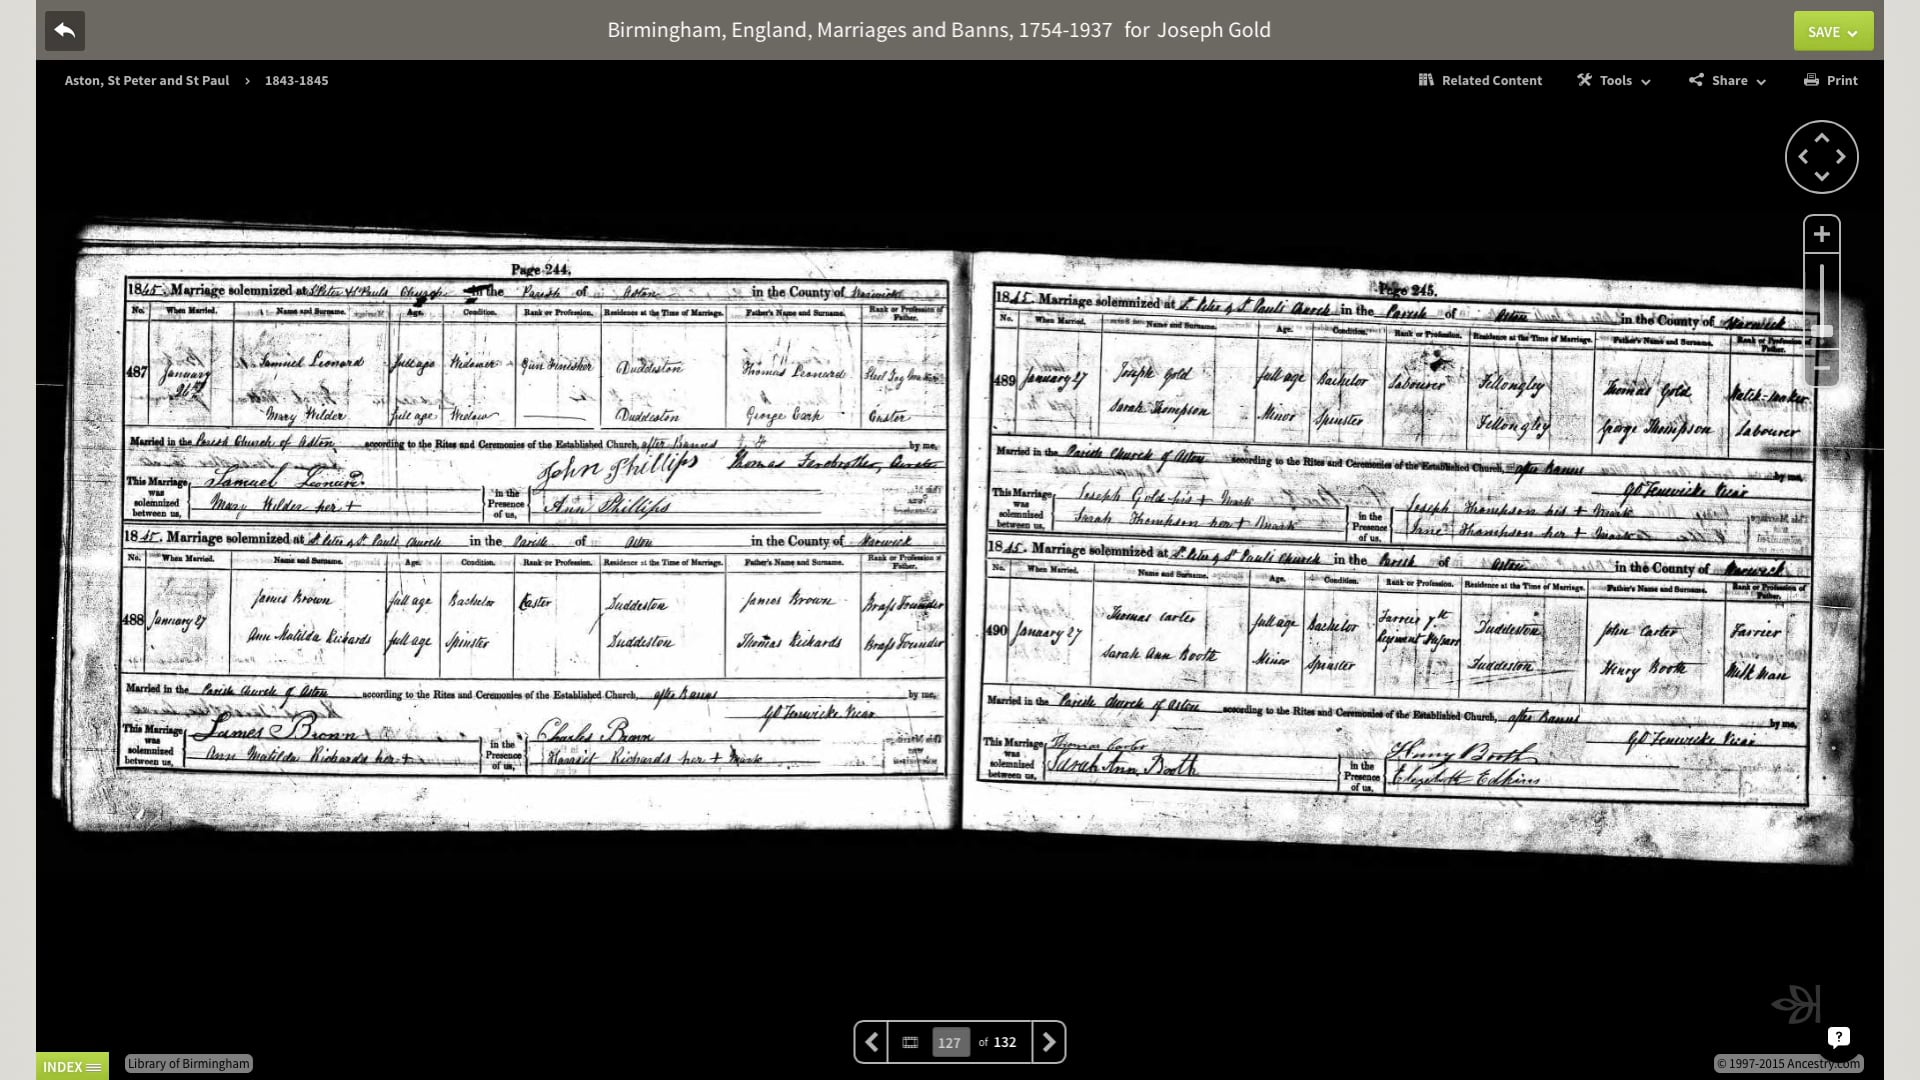 Birmingham, England, Marriages and Banns, 1754-1937 for Joseph Gold
SAVE
Aston, St Peter and St Paul > 1843-1845
Related Content
Tools
Share
Print
Page 244.
1845. Marriage solemnized at St Peter & St Pauls Church in the Parish of Aston in the County of Warwick
No. When Married. Name and Surname. Age. Condition. Rank or Profession. Residence at the Time of Marriage. Father's Name and Surname. Rank or Profession of Father.
487 January 26th Samuel Leonard full age Widower Gun Finisher Duddeston Thomas Leonard
Mary Wilder full age Widow Duddeston George Caster
Married in the Parish Church of Aston according to the Rites and Ceremonies of the Established Church, after Banns by me,
Thomas Firebrother, Curate
This Marriage was solemnized between us, Samuel Leonard
Mary Wilder her +
in the Presence of us, John Phillips
Ann Phillips
1845. Marriage solemnized at St Peter & St Pauls Church in the Parish of Aston in the County of Warwick
No. When Married. Name and Surname. Age. Condition. Rank or Profession. Residence at the Time of Marriage. Father's Name and Surname. Rank or Profession of Father.
488 January 27 James Brown full age Bachelor Caster Duddeston James Brown Brass Founder
Ann Matilda Rickards full age Spinster Duddeston Thomas Rickards Brass Founder
Married in the Parish Church of Aston according to the Rites and Ceremonies of the Established Church, after Banns by me,
GO Fenwicke Vicar
This Marriage was solemnized between us, James Brown
Ann Matilda Richards her +
in the Presence of us, Charles Brown
Harriet Richards her + Mark
Page 245.
1845. Marriage solemnized at St Peter & St Pauls Church in the Parish of Aston in the County of Warwick
No. When Married. Name and Surname. Age. Condition. Rank or Profession. Residence at the Time of Marriage. Father's Name and Surname. Rank or Profession of Father.
489 January 27 Joseph Gold full age Bachelor Labourer Fillongley Thomas Gold
Sarah Thompson Minor Spinster Fillongley George Thompson Labourer
Married in the Parish Church of Aston according to the Rites and Ceremonies of the Established Church, after Banns by me,
GO Fenwicke Vicar
This Marriage was solemnized between us, Joseph Gold his + Mark
Sarah Thompson her + Mark
in the Presence of us, Joseph Thompson his + Mark
Jane Thompson her + Mark
1845. Marriage solemnized at St Peter & St Pauls Church in the Parish of Aston in the County of Warwick
No. When Married. Name and Surname. Age. Condition. Rank or Profession. Residence at the Time of Marriage. Father's Name and Surname. Rank or Profession of Father.
490 January 27 Thomas Carter full age Bachelor Farrier 7th Regiment Hussars Duddeston John Carter Farrier
Sarah Ann Booth Minor Spinster Duddeston Henry Booth Milk Man
Married in the Parish Church of Aston according to the Rites and Ceremonies of the Established Church, after Banns by me,
GO Fenwicke Vicar
This Marriage was solemnized between us, Thomas Carter
Sarah Ann Booth
in the Presence of us, Henry Booth
Elizabeth Edkins
127 of 132
INDEX
Library of Birmingham
?
© 1997-2015 Ancestry.com